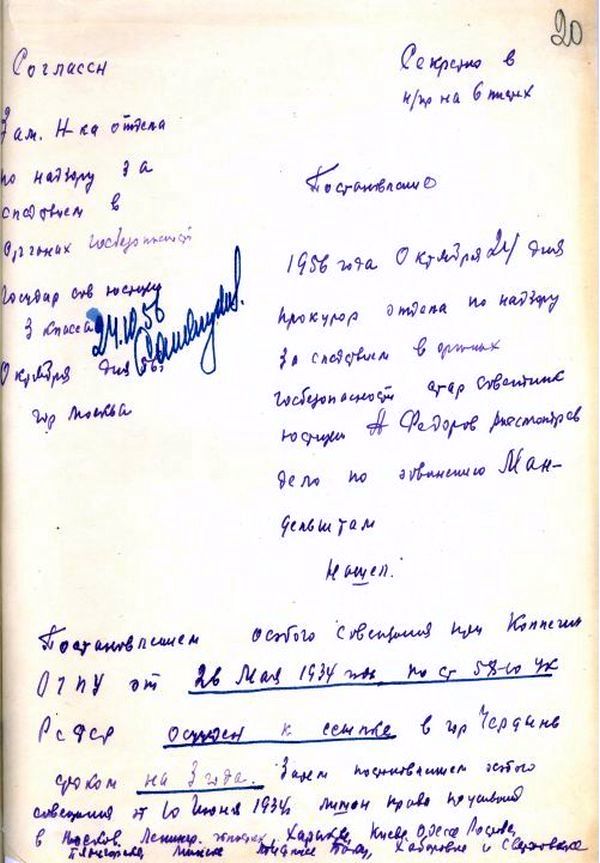 20
Согласен
Секретно в
Зам. Н-ка отдела
по надзору за
следствием в
органах госбезопасности
Государ сов юстиции
3 класса
24.10.56
Октября дня 56г
гор Москва
Постановление
1956 года Октября 24 дня
прокурор отдела по надзору
за следствием в органах
госбезопасности стар советник
юстиции Федоров рассмотрев
дело по обвинению Ман-
дельштам
Нашел:
Постановлением особого совещания при Коллегии
ОГПУ от 26 Мая 1934 года по ст 58-10 УК
РСФСР осужден к ссылке в гор Чердынь
сроком на 3 года. Затем постановлением особого
совещания от 10 Июня 1934г лишен права проживания
в Москов. Ленингр. областях, Харькове, Киеве Одессе Ростове,
Пятигорске, Минске Тифлисе Баку, Хабаровске и Свердловске